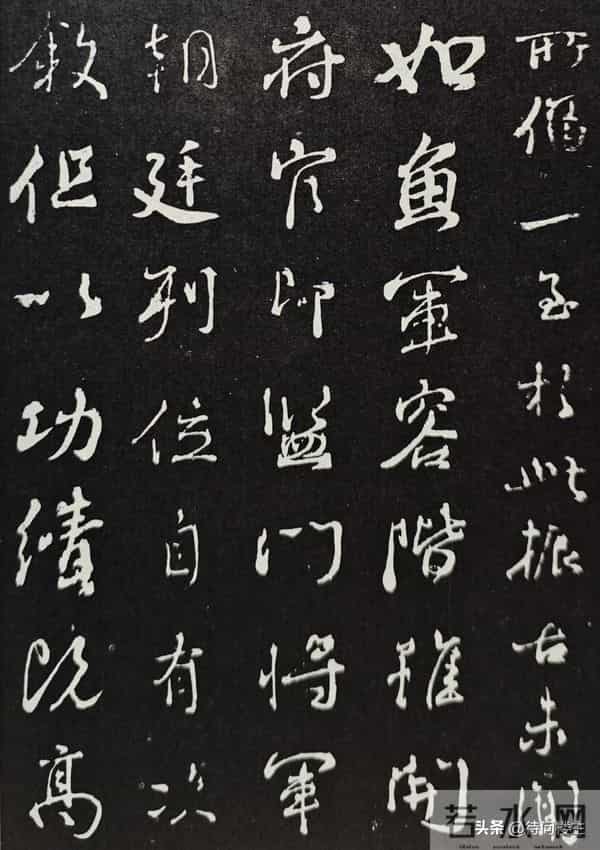 所一至於此振古未聞
如魚軍容階雖開
府官即監門將軍
朝廷列位自有次
敘但以功績既高
若水网
头条 @待问楼主